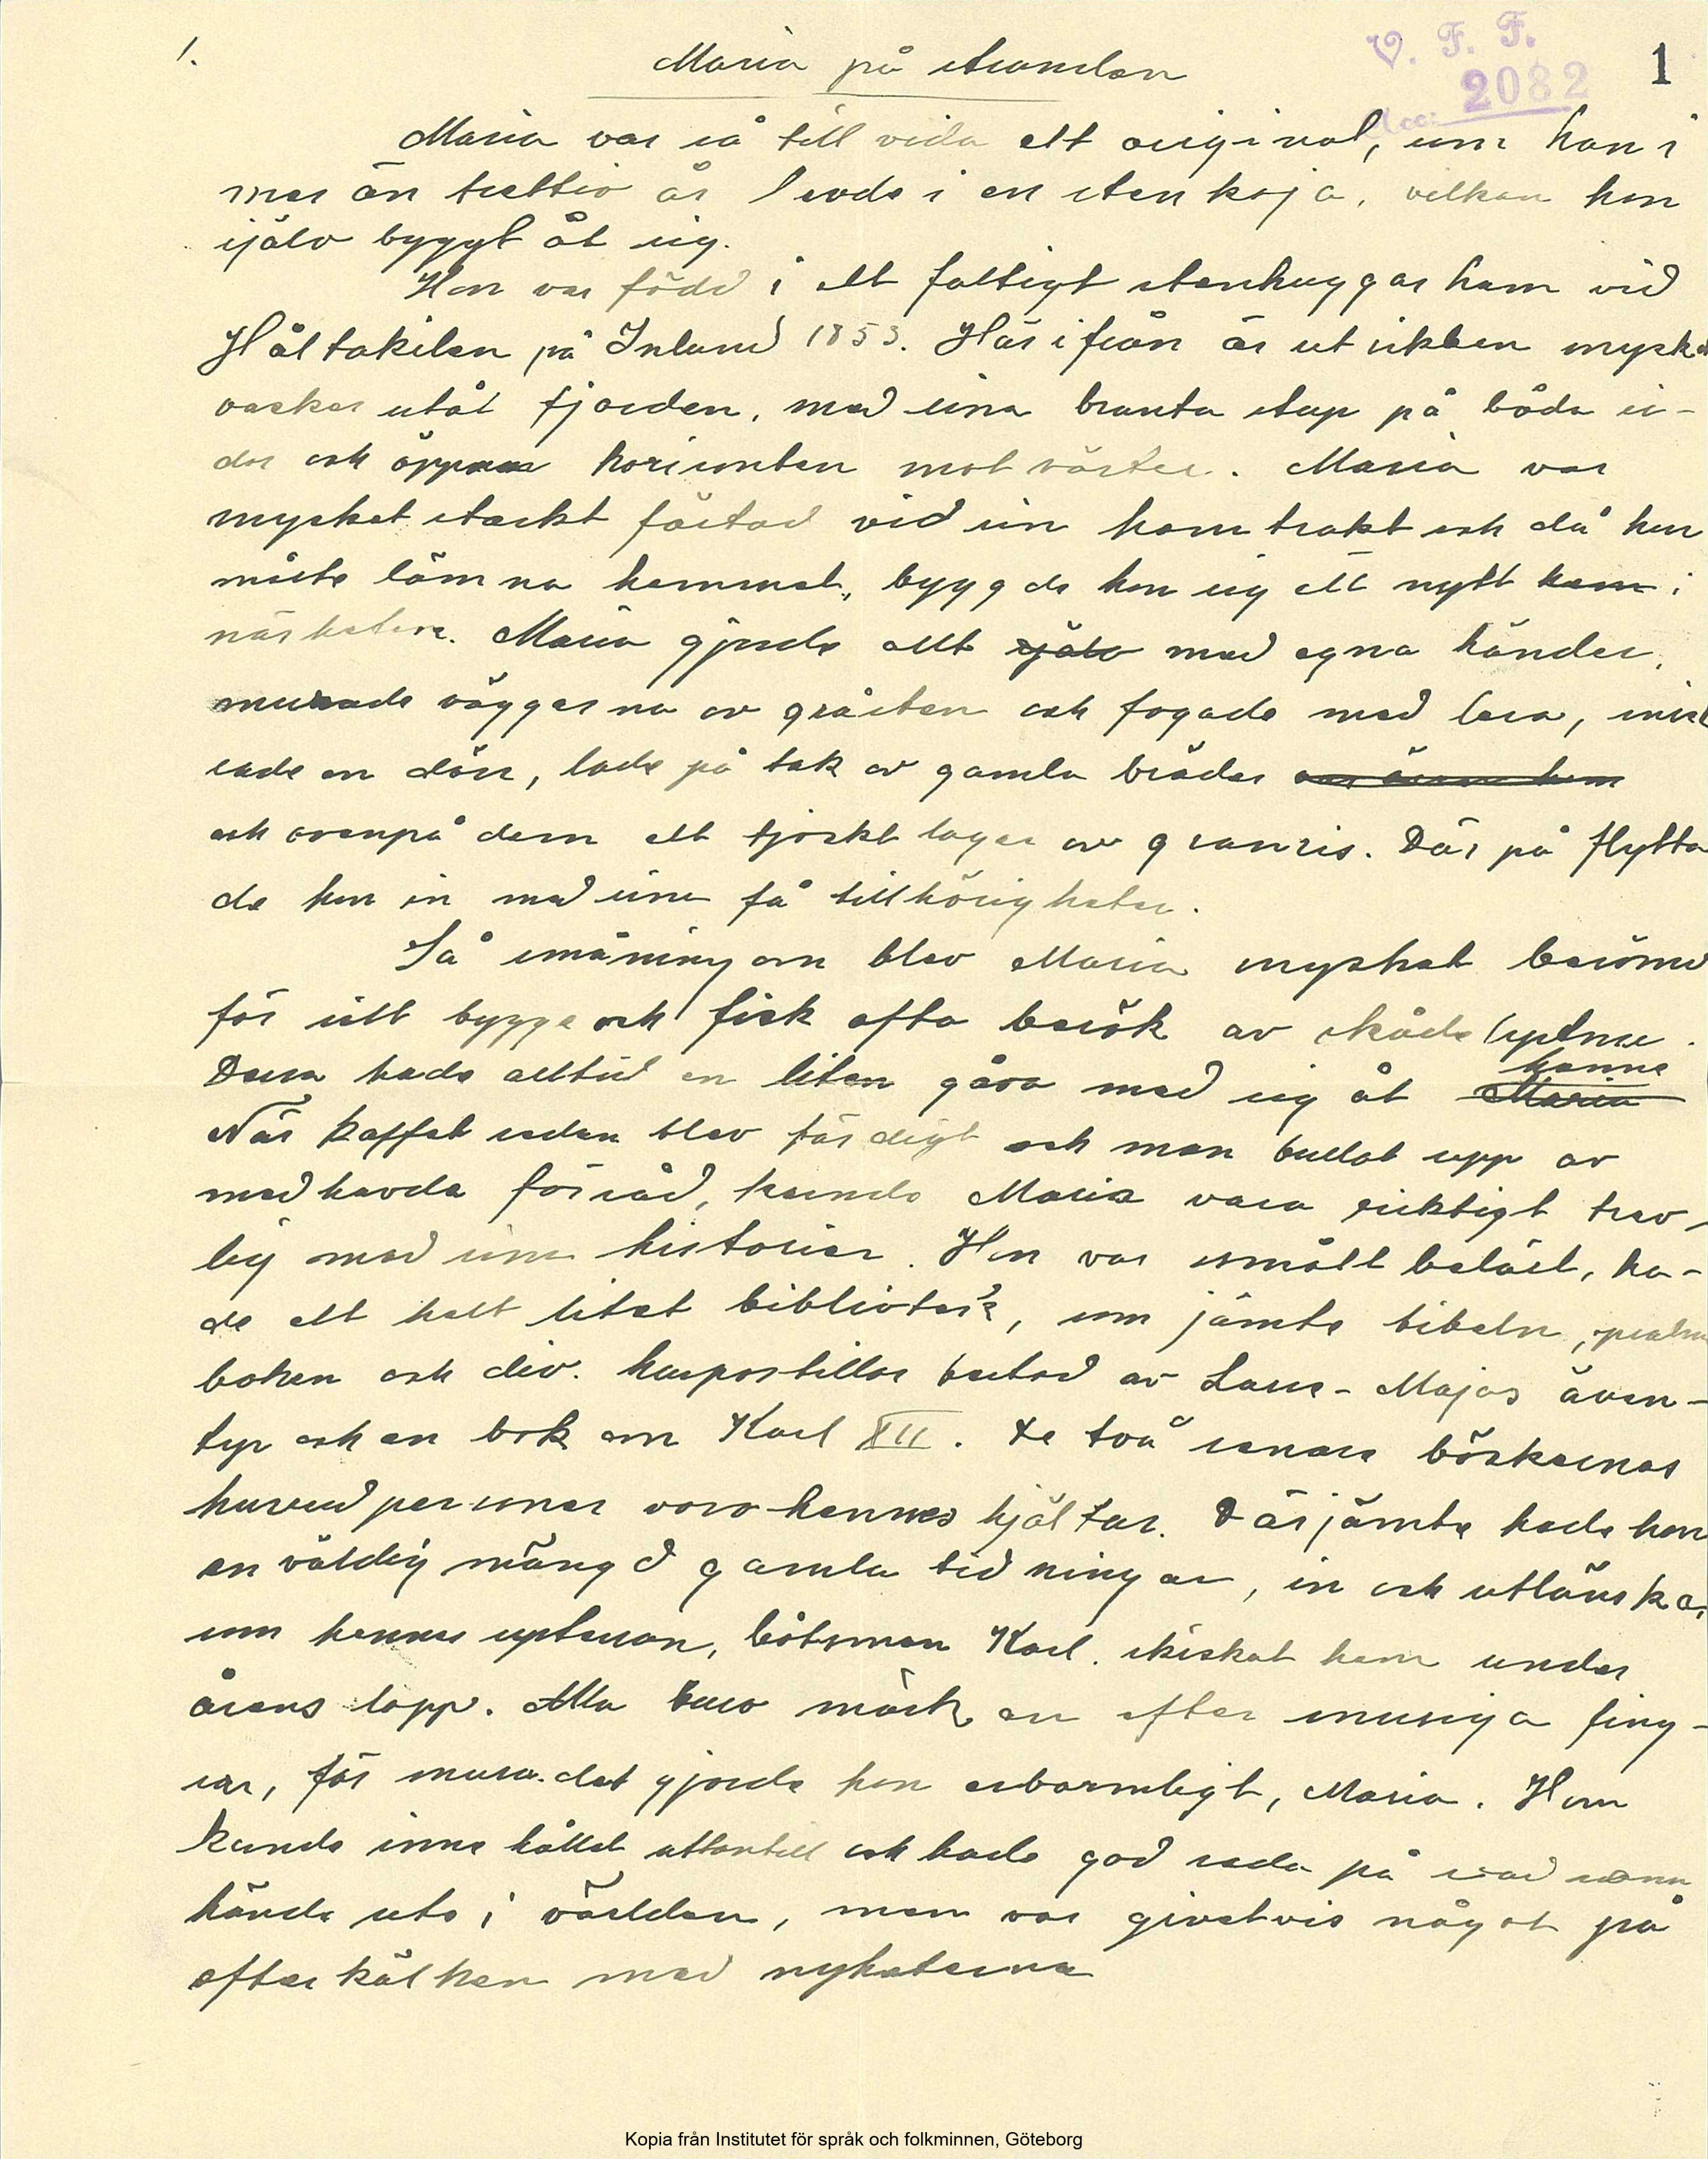 1.
Maria på stranden
V. F. F.
Acc: 2082
1
Maria var så till vida ett original, som hon i
mer än trettio år levde i en stenkoja, vilken hon
själv byggt åt sig.
Hon var född i ett fattigt stenhuggarhem vid
Håltakilen på Inland 1853. Härifrån är utsikten mycket
vacker utåt fjorden, med sina branta stup på båda si-
dor och öppna horisonten mot väster. Maria var
mycket starkt fästad vid sin hemtrakt och då hon
måste lämna hemmet, byggde hon sig ett nytt hem i
närheten. Maria gjorde allt själv med egna händer,
murade väggarna av gråsten och fogade med lera, inset
sade en dörr, lade på tak av gamla bräder
och ovenpå dem ett tjockt lager av granris. Där på flytta
de hon in med sina få tillhörigheter.
Så småningom blev Maria mycket berömd
för sitt bygge och fick ofta besök av skådelystne.
Dessa hade alltid en liten gåva med sig åt Maria henne
När kaffet sedan blev färdigt och man dukat upp av
medhavda förråd, kunde Maria vara riktigt trev-
lig med sina historier. Hon var smått beläst, ha-
de ett helt litet bibliotek, som jämte bibeln, psalm
boken och div. huspostillor bestod av Lasse-Majas även-
tyr och en bok om Karl XII. De två senare böckernas
huvudpersoner voro hennes hjältar. Därjämte hade hon
en väldig mängd gamla tidningar, in och utländska,
som hennes systerson, båtsman Karl. skickat hem under
årens lopp. Alla buro märken efter snusiga fing-
rar, för snusa det gjorde hon erbarmligt, Maria. Hon
kunde innehållet utantill och hade god reda på vad som
hände ute i världen, men var givetvis något på
efterkälken med nyheterna
Kopia från Institutet för språk och folkminnen, Göteborg